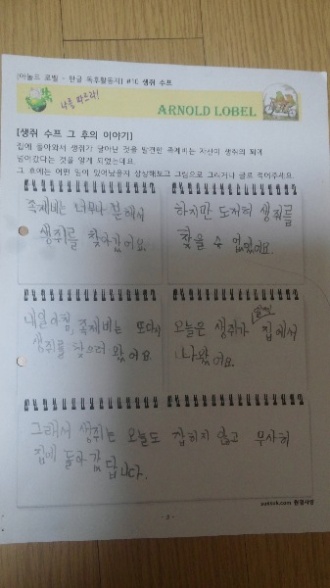 (아놀드 로벨 - 한글 독후활동지) #10 생쥐 수프
나를 따르라!
ARNOLD LOBEL
[생쥐 수프 그 후의 이야기]
집에 돌아와서 생쥐가 달아난 것을 발견한 족제비는 자신이 생쥐의 꾀에
넘어갔다는 것을 알게 되었는데요.
그 후에는 어떤 일이 있어났을지 상상해보고 그림으로 그리거나 글로 적어주세요.
족제비는 너무나 분해서
생쥐를 찾아갔어요.
하지만 도저히 생쥐를
찾을 수 없었어요.
족제비는 또다시
생쥐를 찾으러 왔어요.
오늘은 생쥐가 집에서
나왔어요.
그래서 생쥐는 오늘도 잡히지 않고 무사히
집에 돌아갔답니다.